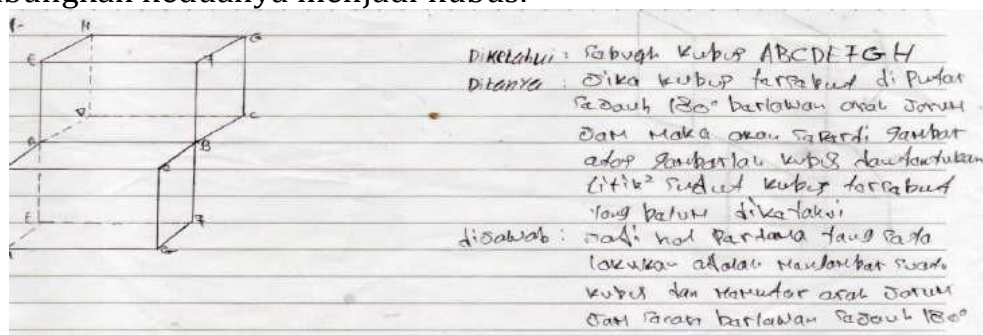 bungkan keduanya menjadi kubus.
1-
H
G
E
F
D
C
A
B
C
E
F
G
Diketahui : Sabuah kubus ABCDEFGH
Ditanya : Jika kubus tarsabut di Putar
Sajauh 180° barlawan arah Jarum
Jam Maka akan Saparti gambar
gambarlah kubus dan tantukan
titik² Sudut kubus tarsabut
Yang balum dikatahui
dijawab : Jadi hal Partama Yang Saya
lakukan adalah Manggambar Suatu
kubus dan Mamutar arah Jarum
Jam Sacara barlawan Sajauh 180°